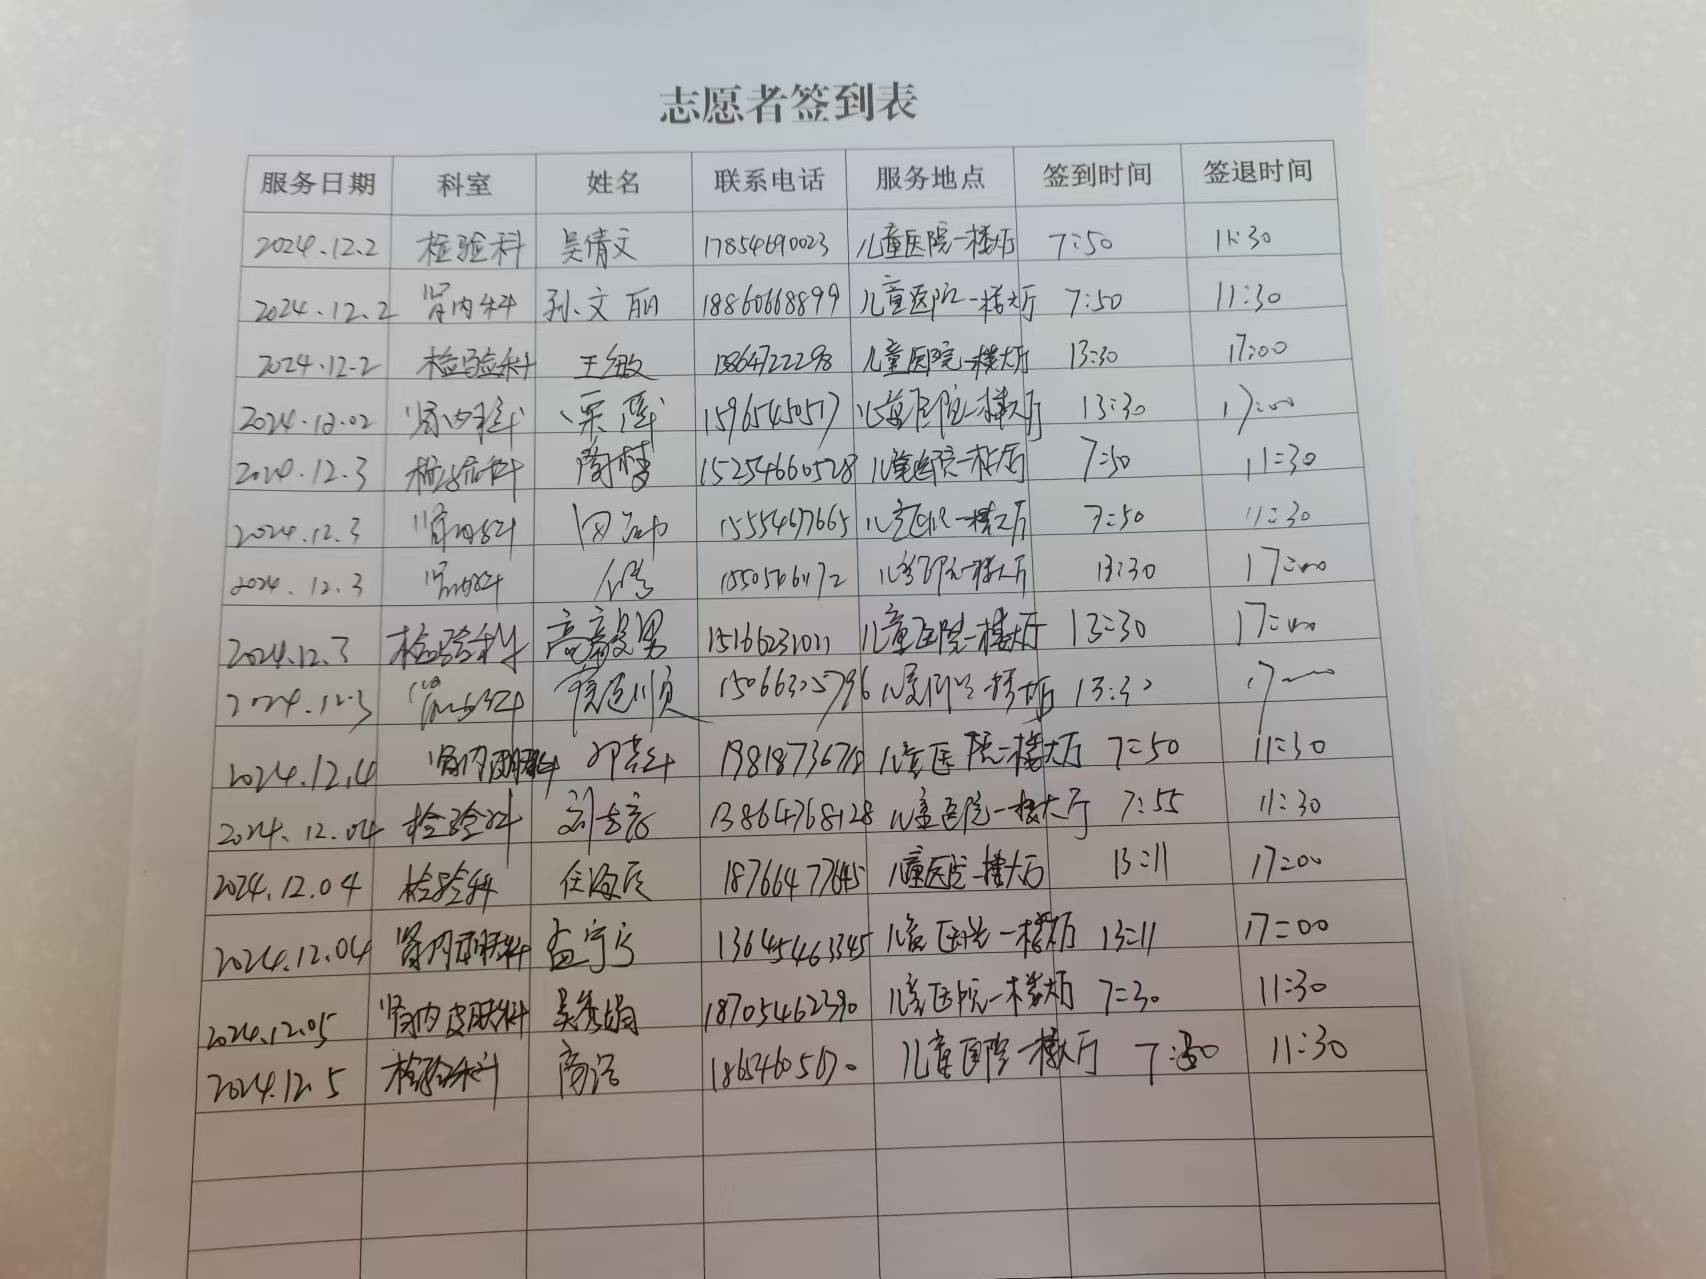 志愿者签到表
服务日期 科室 姓名 联系电话 服务地点 签到时间 签退时间
2024.12.2 检验科 吴倩文 17854690023 儿童医院一楼大厅 7:50 11:30
2024.12.2 肾内科 孙文丽 18860668899 儿童医院一楼大厅 7:50 11:30
2024.12.2 检验科 王敏 儿童医院一楼大厅 13:30 17:00
2024.12.02 肾内科 儿童医院一楼大厅 13:30 17:00
2024.12.3 检验科 15254660528 儿童医院一楼大厅 7:50 11:30
2024.12.3 肾内科 15554677665 儿童医院一楼大厅 7:50 11:30
2024.12.3 肾内科 儿童医院一楼大厅 13:30 17:00
2024.12.3 检验科 15166231011 儿童医院一楼大厅 13:30 17:00
2024.12.3 肾内科 15066305796 儿童医院一楼大厅 13:30 17:00
2024.12.4 肾内皮肤科 儿童医院一楼大厅 7:50 11:30
2024.12.04 检验科 13864768128 儿童医院一楼大厅 7:55 11:30
2024.12.04 检验科 18766477645 儿童医院一楼大厅 13:11 17:00
2024.12.04 肾内皮肤科 孟宁宁 13645463345 儿童医院一楼大厅 13:11 17:00
2024.12.05 肾内皮肤科 吴秀娟 18705462390 儿童医院一楼大厅 7:30 11:30
2024.12.5 检验科 儿童医院一楼大厅 7:30 11:30